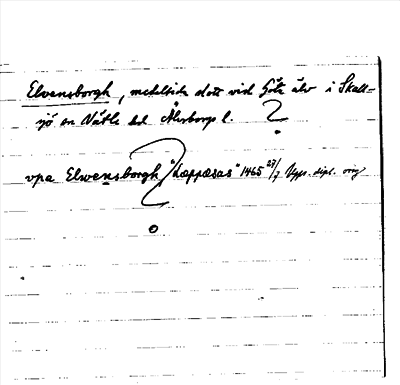 Elvensborgh, medeltida slott vid Göta älv i Skall-
sjö sn Vättle hd Älvsborgs l. ?
vpa Elwensborgh "Læppæsas" 1465 27/7 Upps. dipl. orig
?